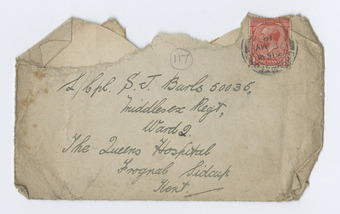 117
L/Cpl. S. J. Burls 50035,
Middlesex Regt,
Ward 2.
The Queens Hospital
Frognal Sidcup
Kent